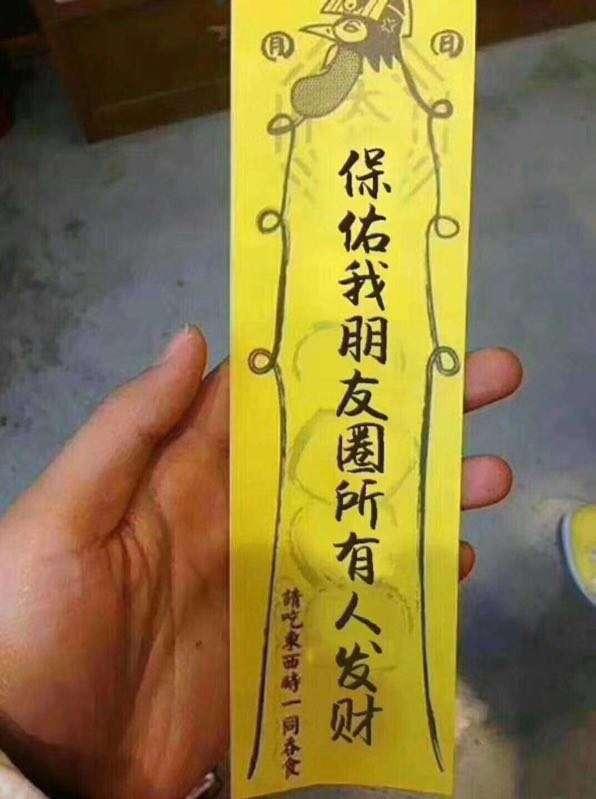 月
日
保佑我朋友圈所有人发财
請吃東西時一同吞食